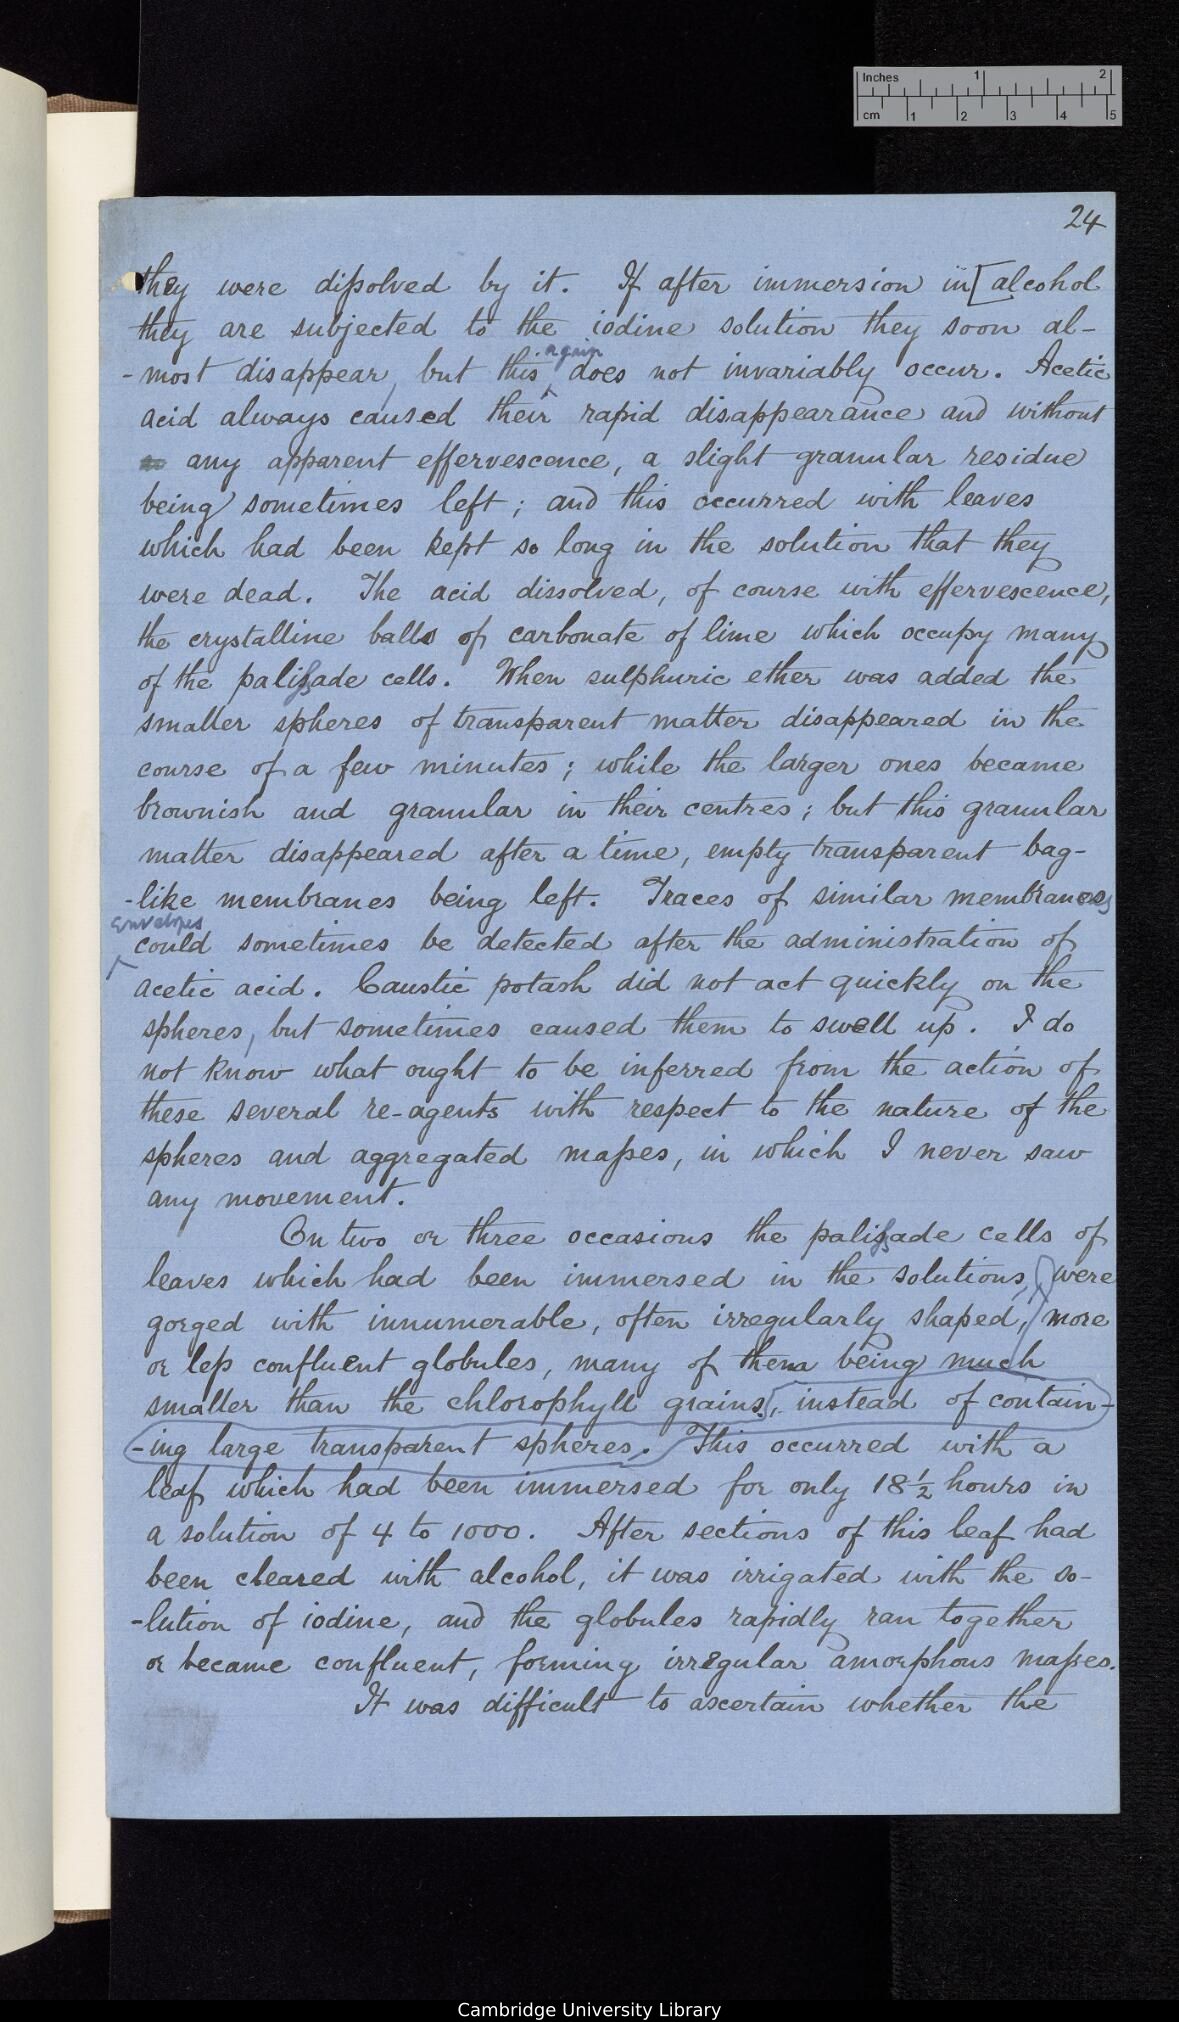 Inches 1 2
cm 1 2 3 4 5
24
they were dissolved by it. If after immersion in [alcohol
they are subjected to the iodine solution they soon al-
again
-most disappear, but this ^ does not invariably occur. Acetic
acid always caused their rapid disappearance and without
any apparent effervescence, a slight granular residue
being sometimes left; and this occurred with leaves
which had been kept so long in the solution that they
were dead. The acid dissolved, of course with effervescence,
the crystalline balls of carbonate of lime which occupy many
of the palissade cells. When sulphuric ether was added the
smaller spheres of transparent matter disappeared in the
course of a few minutes; while the larger ones became
brownish and granular in their centres; but this granular
matter disappeared after a time, empty transparent bag-
-like membranes being left. Traces of similar membranous
envelopes
^ could sometimes be detected after the administration of
acetic acid. Caustic potash did not act quickly on the
spheres, but sometimes caused them to swell up. I do
not know what ought to be inferred from the action of
these several re-agents with respect to the nature of the
spheres and aggregated masses, in which I never saw
any movement.
On two or three occasions the palissade cells of
leaves which had been immersed in the solutions, were
gorged with innumerable, often irregularly shaped, more
or less confluent globules, many of them being much
smaller than the chlorophyll grains, instead of contain-
-ing large transparent spheres. This occurred with a
leaf which had been immersed for only 18½ hours in
a solution of 4 to 1000. After sections of this leaf had
been cleared with alcohol, it was irrigated with the so-
-lution of iodine, and the globules rapidly ran together
or became confluent, forming irregular amorphous masses.
It was difficult to ascertain whether the
Cambridge University Library